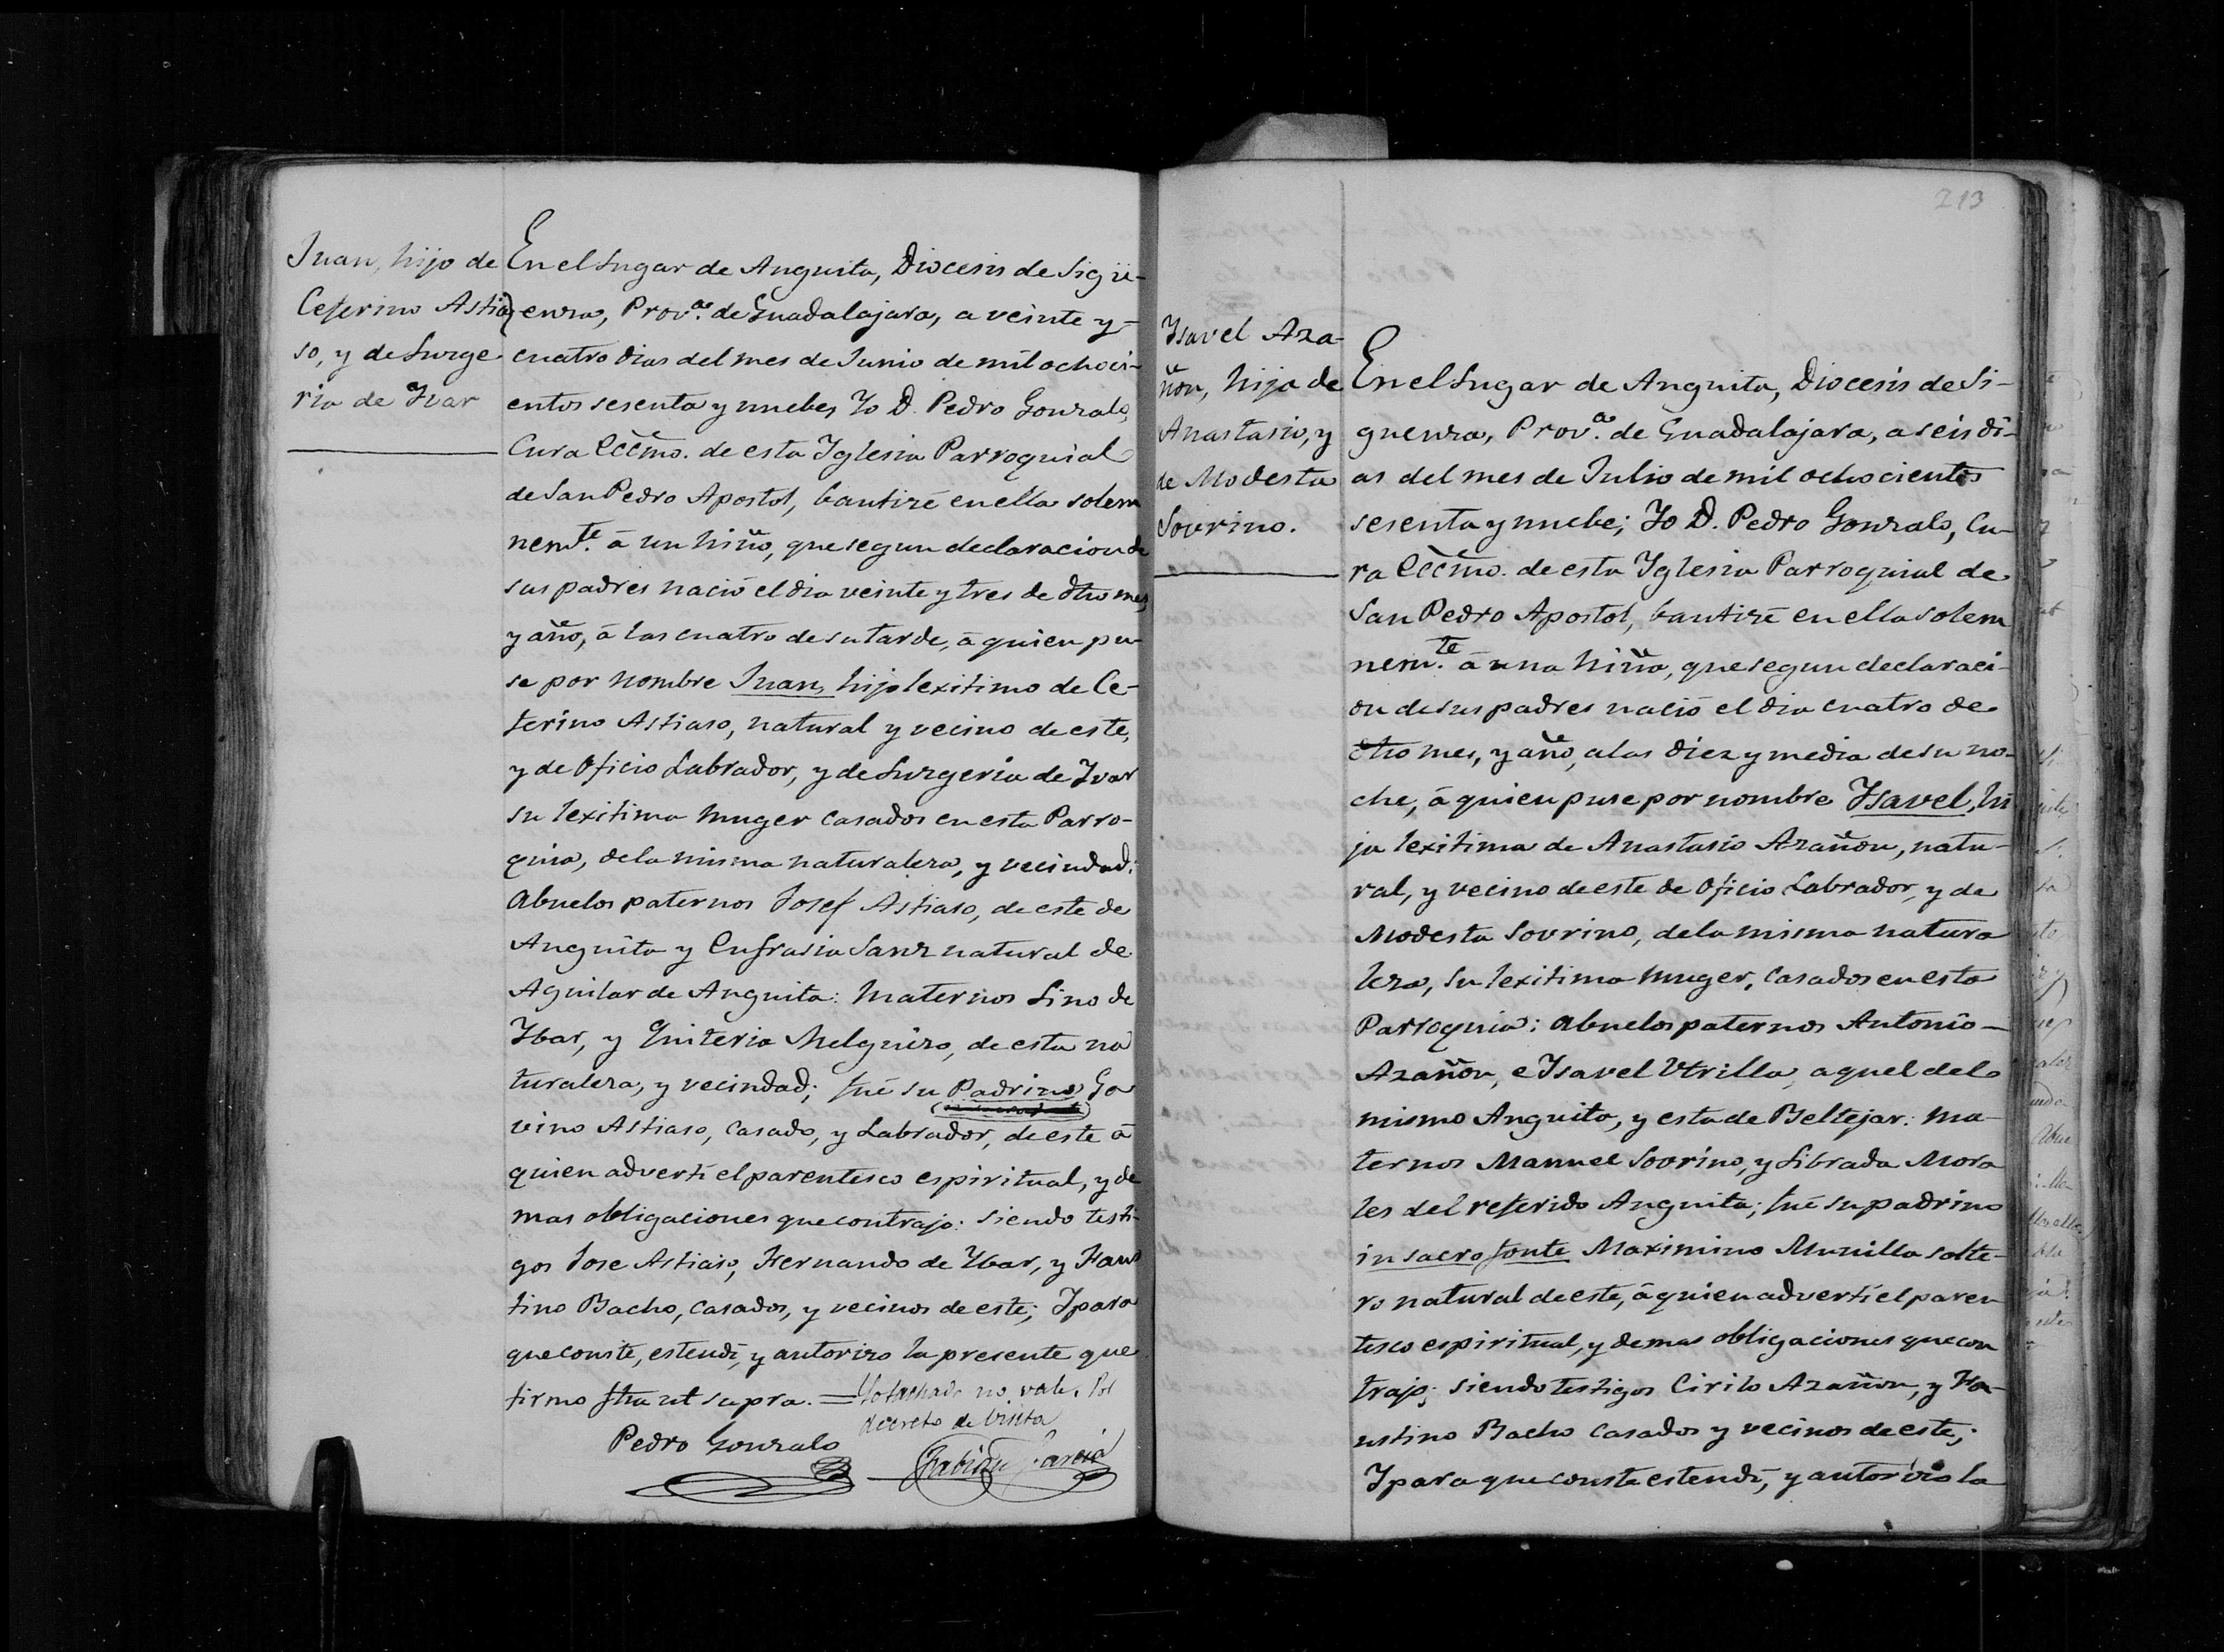 Juan, hijo de
Ceferino Astia
so, y de Lurge
ria de Ivar
En el Lugar de Anguita, Diocesis de Sigü-
enza, Prov.ª de Guadalajara, a veinte y
cuatro dias del mes de Junio de mil ochoci-
entos sesenta y nuebe, Yo D. Pedro Gonzalo,
Cura Eccmo. de esta Yglesia Parroquial
de San Pedro Apostol, bautizé en ella solem
nem.te á un niño, que segun declaracion de
sus padres nació el dia veinte y tres de dho mes,
y año, á las cuatro de su tarde, á quien pu-
se por nombre Juan, hijo lexitimo de Ce-
ferino Astiaso, natural y vecino de este,
y de Oficio Labrador, y de Lurgeria de Ivar
su lexitima muger casados en esta Parro-
quia, de la misma naturaleza, y vecindad:
Abuelos paternos Josef Astiaso, de este de
Anguita y Eufrasia Sanz natural de
Aguilar de Anguita: Maternos Lino de
Ybar, y Quiteria Melguizo, de esta na
turaleza, y vecindad; fué su Padrino Ga
vino Astiaso, casado, y Labrador, de este á
quien advertí el parentesco espiritual, y de
mas obligaciones que contrajo: siendo testi-
gos Jose Astiaso, Fernando de Ybar, y Faus
tino Bacho, casados, y vecinos de este; Y para
que conste, estendí, y autorizo la presente que
firmo fha ut supra. = Lo tachado no vale. Por
decreto de Visita
Pedro Gonzalo
Fabian Garcia
213
Ysavel Aza-
ñon, hija de
Anastasio, y
de Modesta
Sovrino.
En el Lugar de Anguita, Diocesis de Si-
guenza, Prov.ª de Guadalajara, a seis di-
as del mes de Julio de mil ochocientos
sesenta y nuebe; Yo D. Pedro Gonzalo, Cu-
ra Eccmo. de esta Yglesia Parroquial de
San Pedro Apostol, bautizé en ella solem
nem.te á una niña, que segun declaraci-
on de sus padres nació el dia cuatro de
dho mes, y año, a las diez y media de su no-
che, á quien puse por nombre Ysavel, hi
ja lexitima de Anastasio Azañon, natu-
ral, y vecino de este de Oficio Labrador, y de
Modesta Sovrino, de la misma natura
leza, su lexitima muger, casados en esta
Parroquia: abuelos paternos Antonio
Azañon, e Ysavel Utrilla, aquel del
mismo Anguita, y esta de Beltejar: Ma-
ternos Manuel Sovrino, y Librada Mora
les del referido Anguita; fué su padrino
in sacro fonte Maximino Munilla solte-
ro natural de este, á quien advertí el paren
tesco espiritual, y demas obligaciones que con
trajo; siendo testigos Cirilo Azañon, y Fa-
ustino Bacho casados y vecinos de este;
Y para que conste estendí, y autorizo la